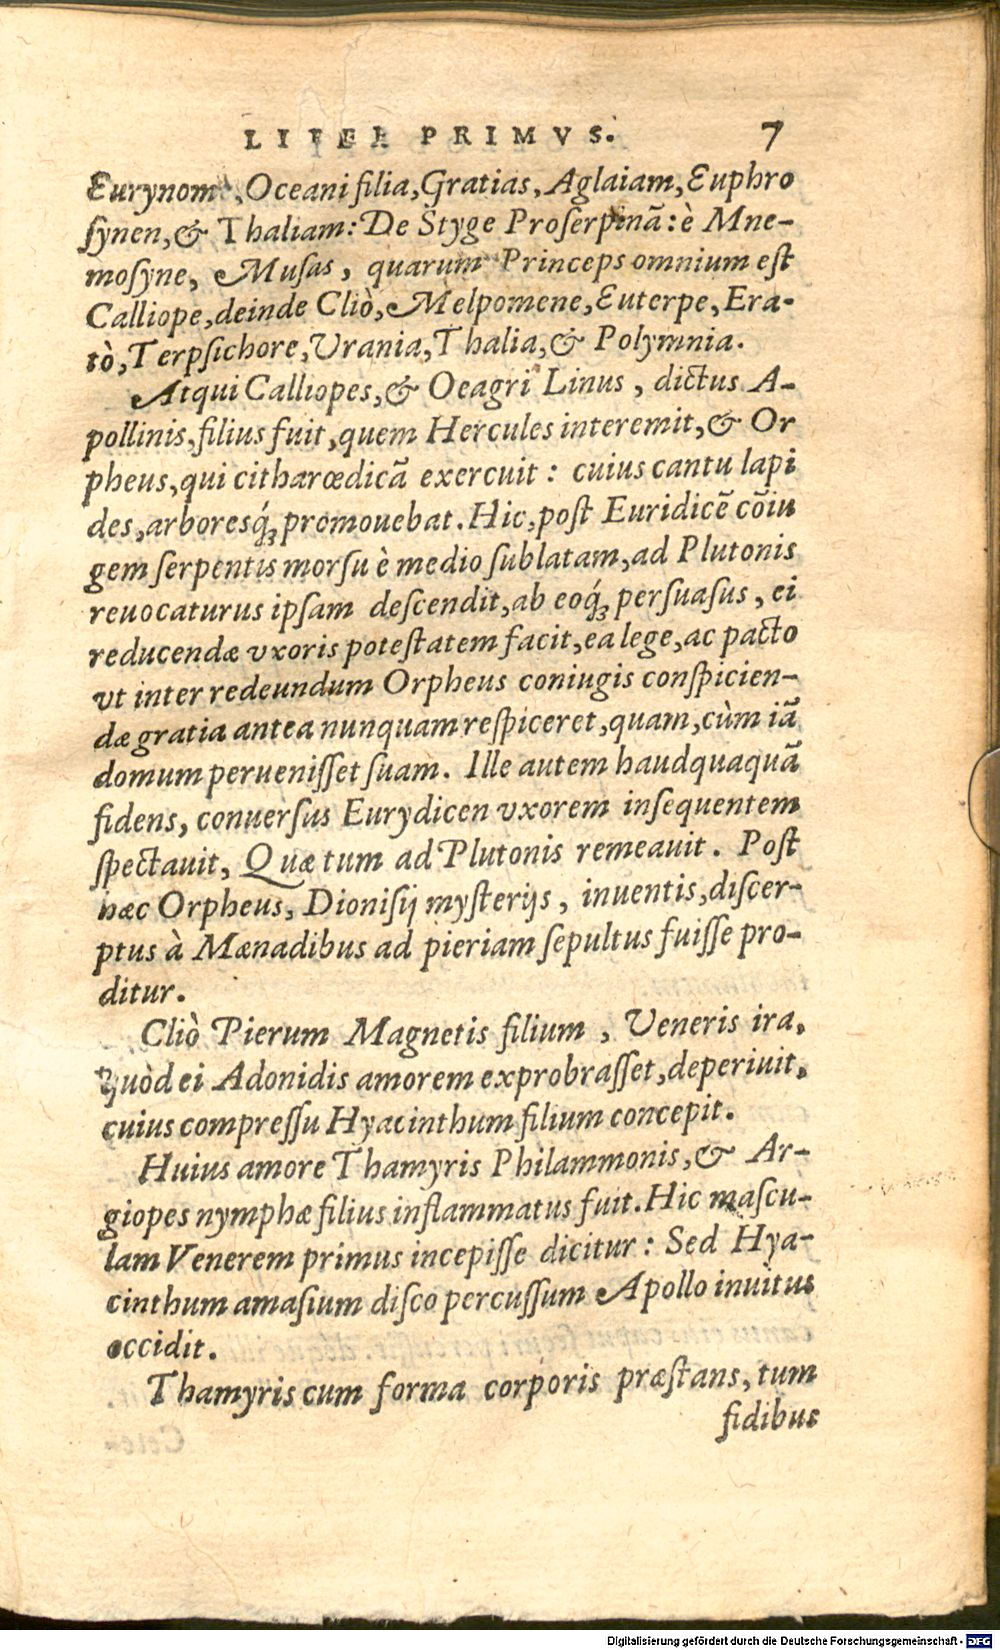 LIBER PRIMVS. 7
Eurynome, Oceani filia, Gratias, Aglaiam, Euphro
ſynen, & Thaliam: De Styge Proſerpinã: è Mne-
moſyne, Muſas, quarum Princeps omnium eſt
Calliope, deinde Cliò, Melpomene, Euterpe, Era-
tò, Terpſichore, Vrania, Thalia, & Polymnia.
Atqui Calliopes, & Oeagri Linus, dictus A-
pollinis, filius fuit, quem Hercules interemit, & Or
pheus, qui citharœdicã exercuit: cuius cantu lapi
des, arboresq́ꝫ promouebat. Hic, poſt Euridicẽ cõiu
gem ſerpentis morſu è medio ſublatam, ad Plutonis
reuocaturus ipſam deſcendit, ab eoq́ꝫ perſuaſus, ei
reducendæ vxoris poteſtatem facit, ea lege, ac pacto
vt inter redeundum Orpheus coniugis conſpicien-
dæ gratia antea nunquam reſpiceret, quam, cùm iã
domum perueniſſet ſuam. Ille autem haudquaquã
fidens, conuerſus Eurydicen vxorem inſequentem
ſpectauit, Quæ tum ad Plutonis remeauit. Poſt
hæc Orpheus, Dioniſij myſterijs, inuentis, diſcer-
ptus à Mænadibus ad pieriam ſepultus fuiſſe pro-
ditur.
Cliò Pierum Magnetis filium, Veneris ira,
quòd ei Adonidis amorem exprobraſſet, deperiuit,
cuius compreſſu Hyacinthum filium concepit.
Huius amore Thamyris Philammonis, & Ar-
giopes nymphæ filius inflammatus fuit. Hic maſcu-
lam Venerem primus incepiſſe dicitur: Sed Hya-
cinthum amaſium diſco percuſſum Apollo inuitus
occidit.
Thamyris cum forma corporis præſtans, tum
fidibus
Digitalisierung gefördert durch die Deutsche Forschungsgemeinschaft - DFG